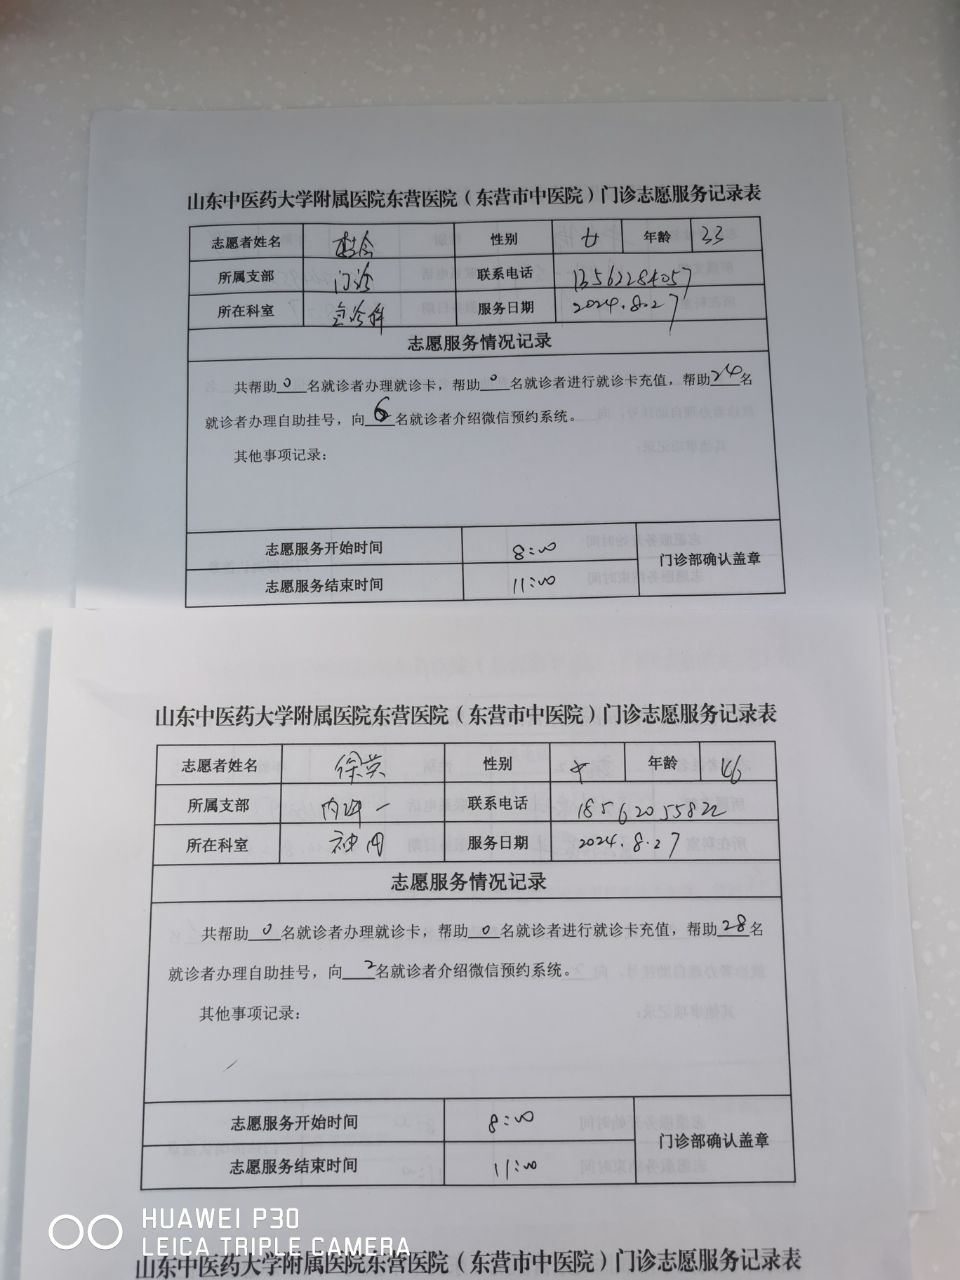 山东中医药大学附属医院东营医院（东营市中医院）门诊志愿服务记录表
志愿者姓名 性别 女 年龄 33
所属支部 门诊 联系电话 13562284057
所在科室 急诊科 服务日期 2024.8.27
志愿服务情况记录
共帮助0名就诊者办理就诊卡，帮助0名就诊者进行就诊卡充值，帮助24名
就诊者办理自助挂号，向6名就诊者介绍微信预约系统。
其他事项记录：
志愿服务开始时间 8:00
门诊部确认盖章
志愿服务结束时间 11:00
山东中医药大学附属医院东营医院（东营市中医院）门诊志愿服务记录表
志愿者姓名 徐英 性别 女 年龄 46
所属支部 内科一 联系电话 18562055822
所在科室 神内 服务日期 2024.8.27
志愿服务情况记录
共帮助0名就诊者办理就诊卡，帮助0名就诊者进行就诊卡充值，帮助28名
就诊者办理自助挂号，向2名就诊者介绍微信预约系统。
其他事项记录：
志愿服务开始时间 8:00
门诊部确认盖章
志愿服务结束时间 11:00
HUAWEI P30
LEICA TRIPLE CAMERA
山东中医药大学附属医院东营医院（东营市中医院）门诊志愿服务记录表